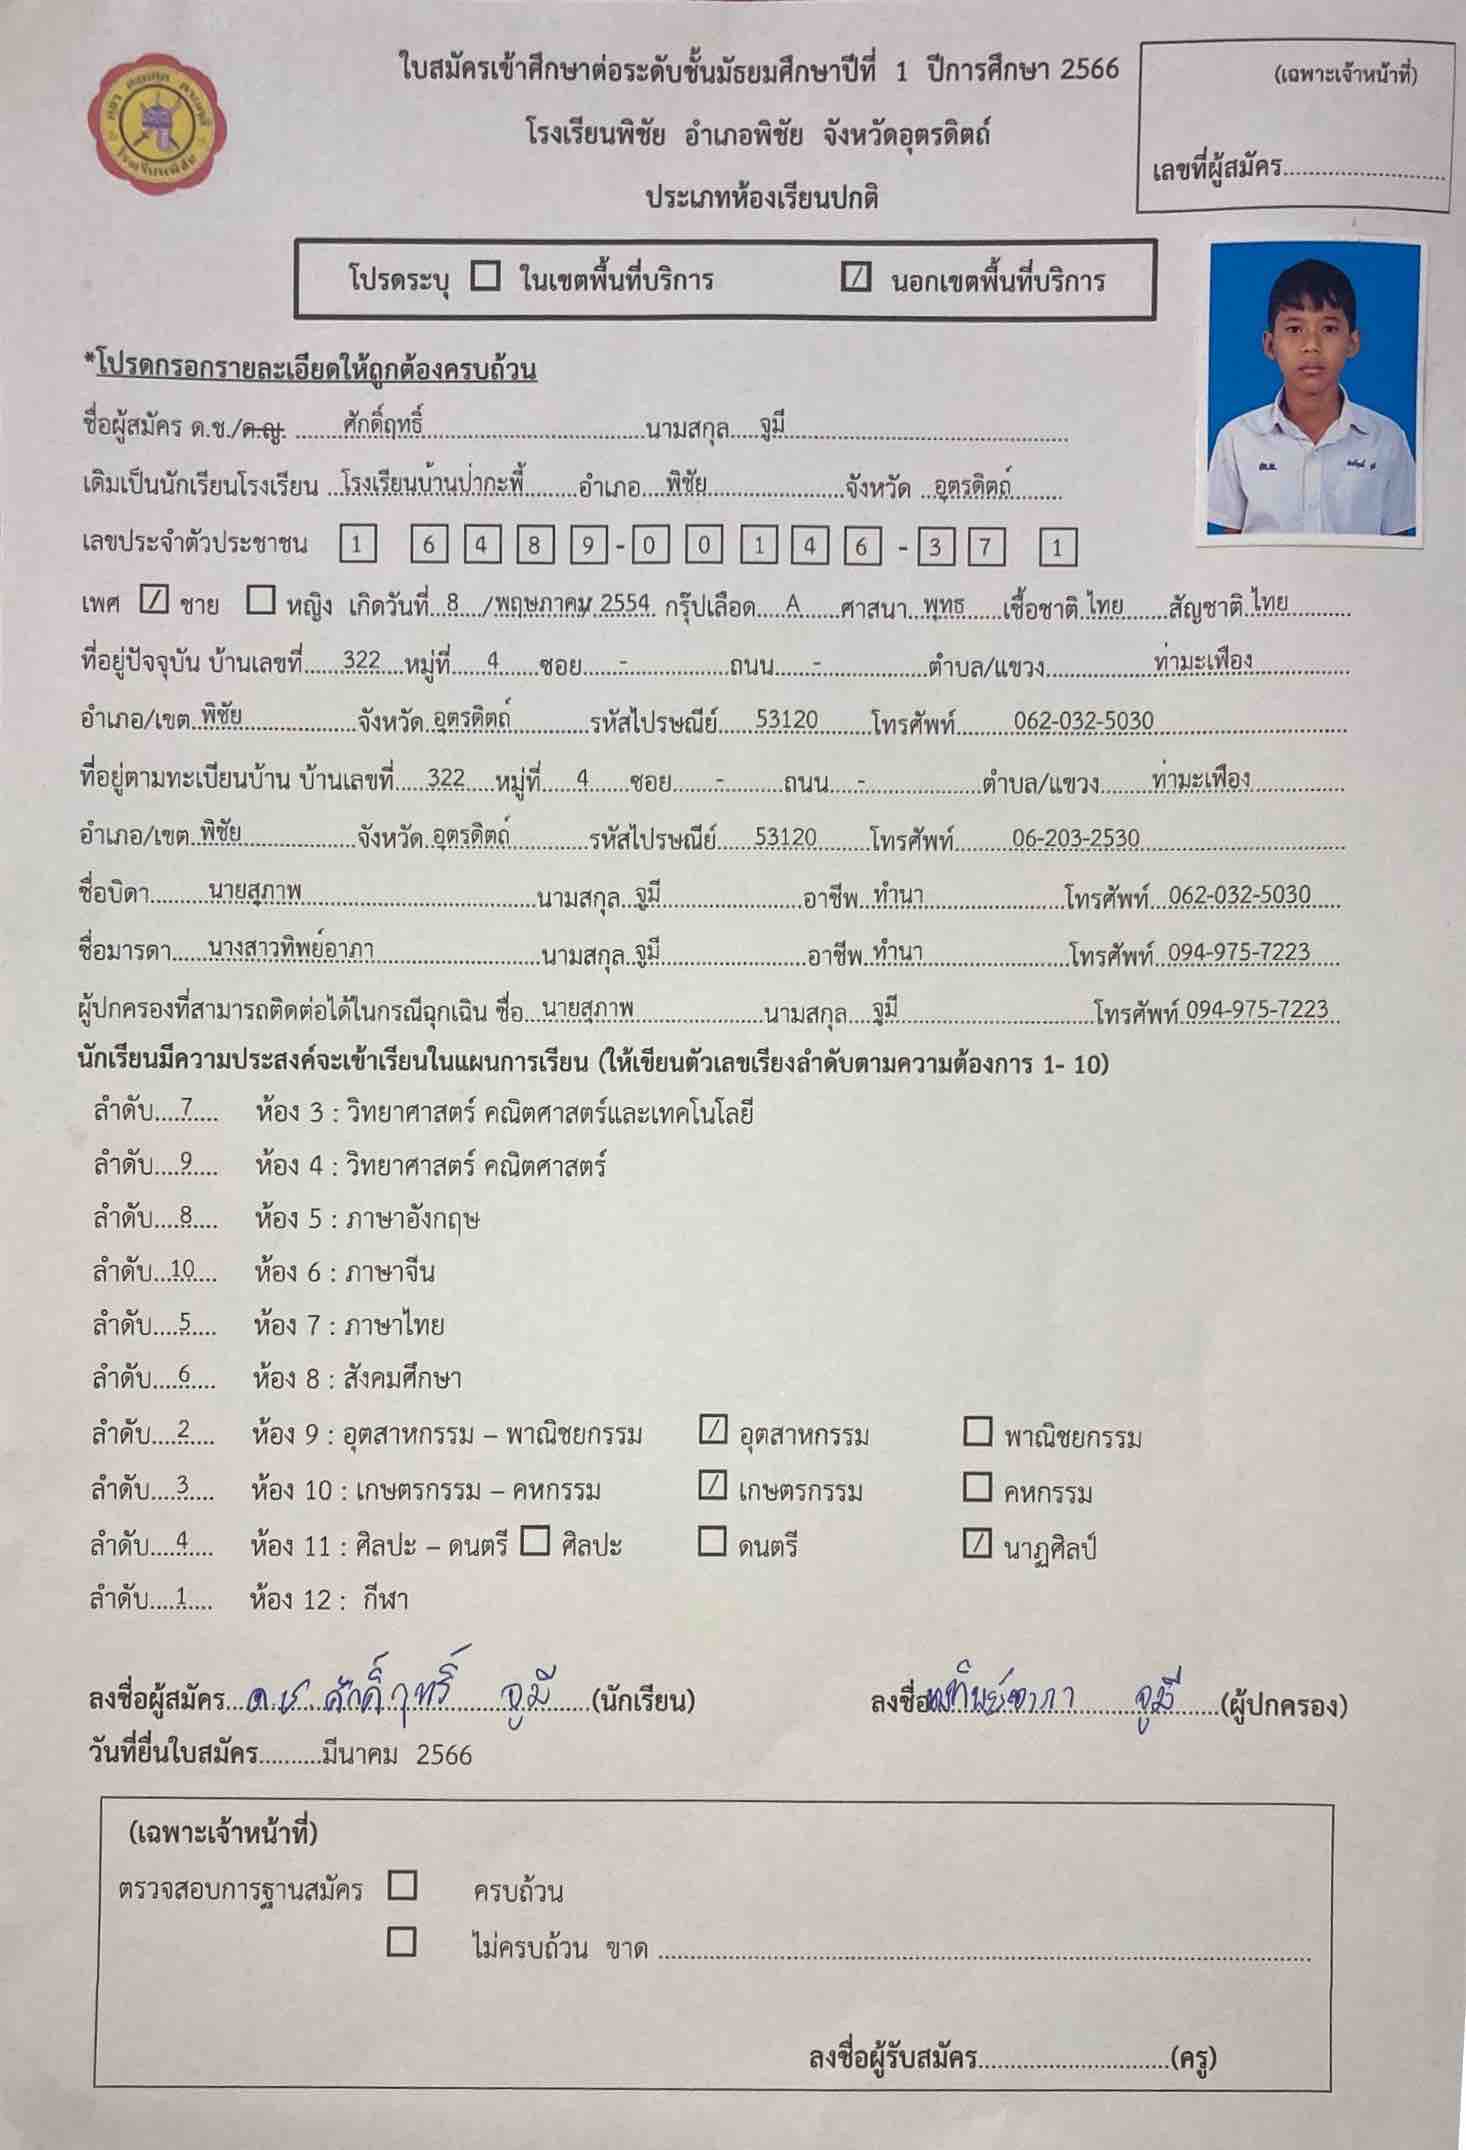 ใบสมัครเข้าศึกษาต่อระดับชั้นมัธยมศึกษาปีที่ 1 ปีการศึกษา 2566
(เฉพาะเจ้าหน้าที่)
โรงเรียนพิชัย อำเภอพิชัย จังหวัดอุตรดิตถ์
เลขที่ผู้สมัคร............................
ประเภทห้องเรียนปกติ
โปรดระบุ ☐ ในเขตพื้นที่บริการ ☑ นอกเขตพื้นที่บริการ
*โปรดกรอกรายละเอียดให้ถูกต้องครบถ้วน
ชื่อผู้สมัคร ด.ช./ด.ญ. ........ศักดิ์ฤทธิ์........นามสกุล.....จูมี........
เดิมเป็นนักเรียนโรงเรียน ..โรงเรียนบ้านป่ากะพี้........อำเภอ....พิชัย........จังหวัด ..อุตรดิตถ์........
เลขประจำตัวประชาชน 1 6 4 8 9 - 0 0 1 4 6 - 3 7 1
เพศ ☑ ชาย ☐ หญิง เกิดวันที่..8.../พฤษภาคม/.2554. กรุ๊ปเลือด....A.....ศาสนา..พุทธ.....เชื้อชาติ.ไทย......สัญชาติ.ไทย........
ที่อยู่ปัจจุบัน บ้านเลขที่.....322...หมู่ที่....4.....ซอย.....-........ถนน.....-........ตำบล/แขวง........ท่ามะเฟือง........
อำเภอ/เขต..พิชัย........จังหวัด..อุตรดิตถ์........รหัสไปรษณีย์.....53120.......โทรศัพท์........062-032-5030........
ที่อยู่ตามทะเบียนบ้าน บ้านเลขที่....322....หมู่ที่.....4.....ซอย......-........ถนน....-........ตำบล/แขวง........ท่ามะเฟือง........
อำเภอ/เขต..พิชัย........จังหวัด..อุตรดิตถ์........รหัสไปรษณีย์.....53120.......โทรศัพท์........06-203-2530........
ชื่อบิดา........นายสุภาพ........นามสกุล..จูมี........อาชีพ..ทำนา........โทรศัพท์...062-032-5030....
ชื่อมารดา.....นางสาวทิพย์อาภา........นามสกุล..จูมี........อาชีพ..ทำนา........โทรศัพท์..094-975-7223....
ผู้ปกครองที่สามารถติดต่อได้ในกรณีฉุกเฉิน ชื่อ...นายสุภาพ........นามสกุล....จูมี........โทรศัพท์ 094-975-7223..
นักเรียนมีความประสงค์จะเข้าเรียนในแผนการเรียน (ให้เขียนตัวเลขเรียงลำดับตามความต้องการ 1- 10)
ลำดับ....7..... ห้อง 3 : วิทยาศาสตร์ คณิตศาสตร์และเทคโนโลยี
ลำดับ....9..... ห้อง 4 : วิทยาศาสตร์ คณิตศาสตร์
ลำดับ....8..... ห้อง 5 : ภาษาอังกฤษ
ลำดับ...10.... ห้อง 6 : ภาษาจีน
ลำดับ....5..... ห้อง 7 : ภาษาไทย
ลำดับ....6..... ห้อง 8 : สังคมศึกษา
ลำดับ....2..... ห้อง 9 : อุตสาหกรรม – พาณิชยกรรม ☑ อุตสาหกรรม ☐ พาณิชยกรรม
ลำดับ....3..... ห้อง 10 : เกษตรกรรม – คหกรรม ☑ เกษตรกรรม ☐ คหกรรม
ลำดับ....4..... ห้อง 11 : ศิลปะ – ดนตรี ☐ ศิลปะ ☐ ดนตรี ☑ นาฏศิลป์
ลำดับ....1..... ห้อง 12 : กีฬา
ลงชื่อผู้สมัคร...ด.ช ศักดิ์ฤทธิ์ จูมี......(นักเรียน) ลงชื่อ ทิพย์อาภา จูมี......(ผู้ปกครอง)
วันที่ยื่นใบสมัคร..........มีนาคม 2566
(เฉพาะเจ้าหน้าที่)
ตรวจสอบการฐานสมัคร ☐ ครบถ้วน
☐ ไม่ครบถ้วน ขาด ........................................
ลงชื่อผู้รับสมัคร..............................(ครู)